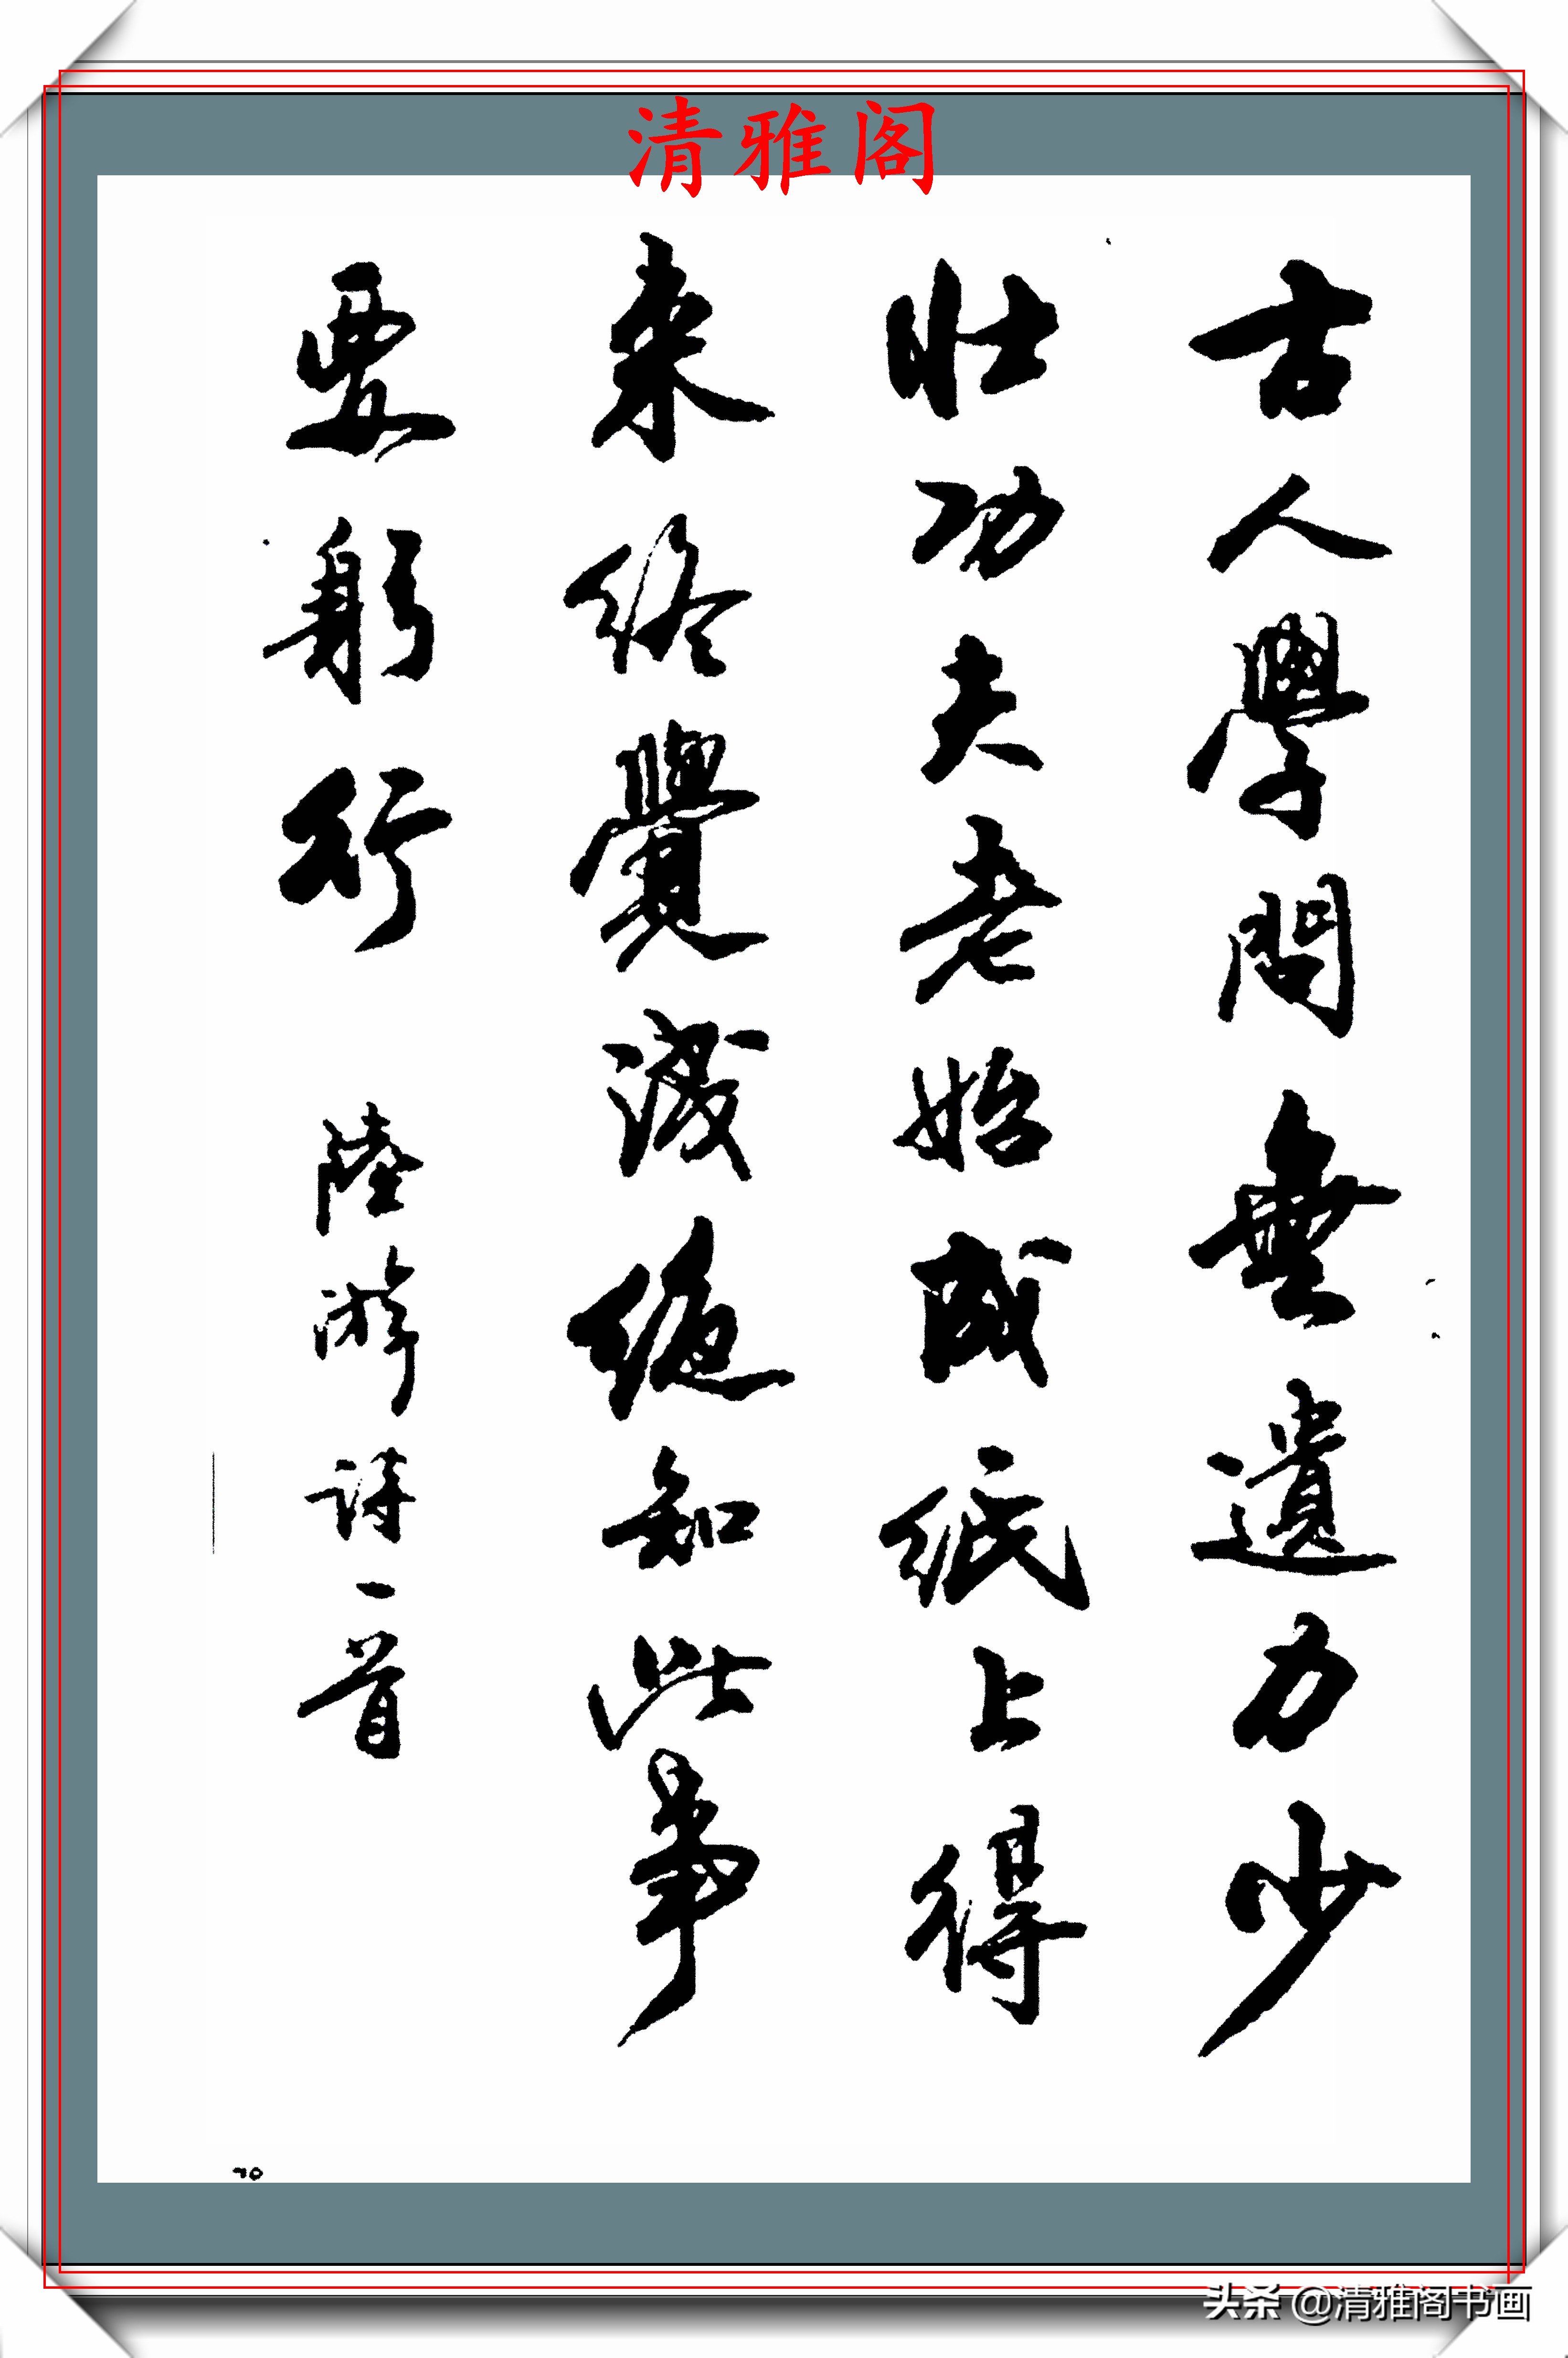 清雅阁
古人學問無遺力少
壯功夫老始成紙上得
来終覺淺絕知此事
要躬行
陸游詩一首
70
头条 @清雅阁书画